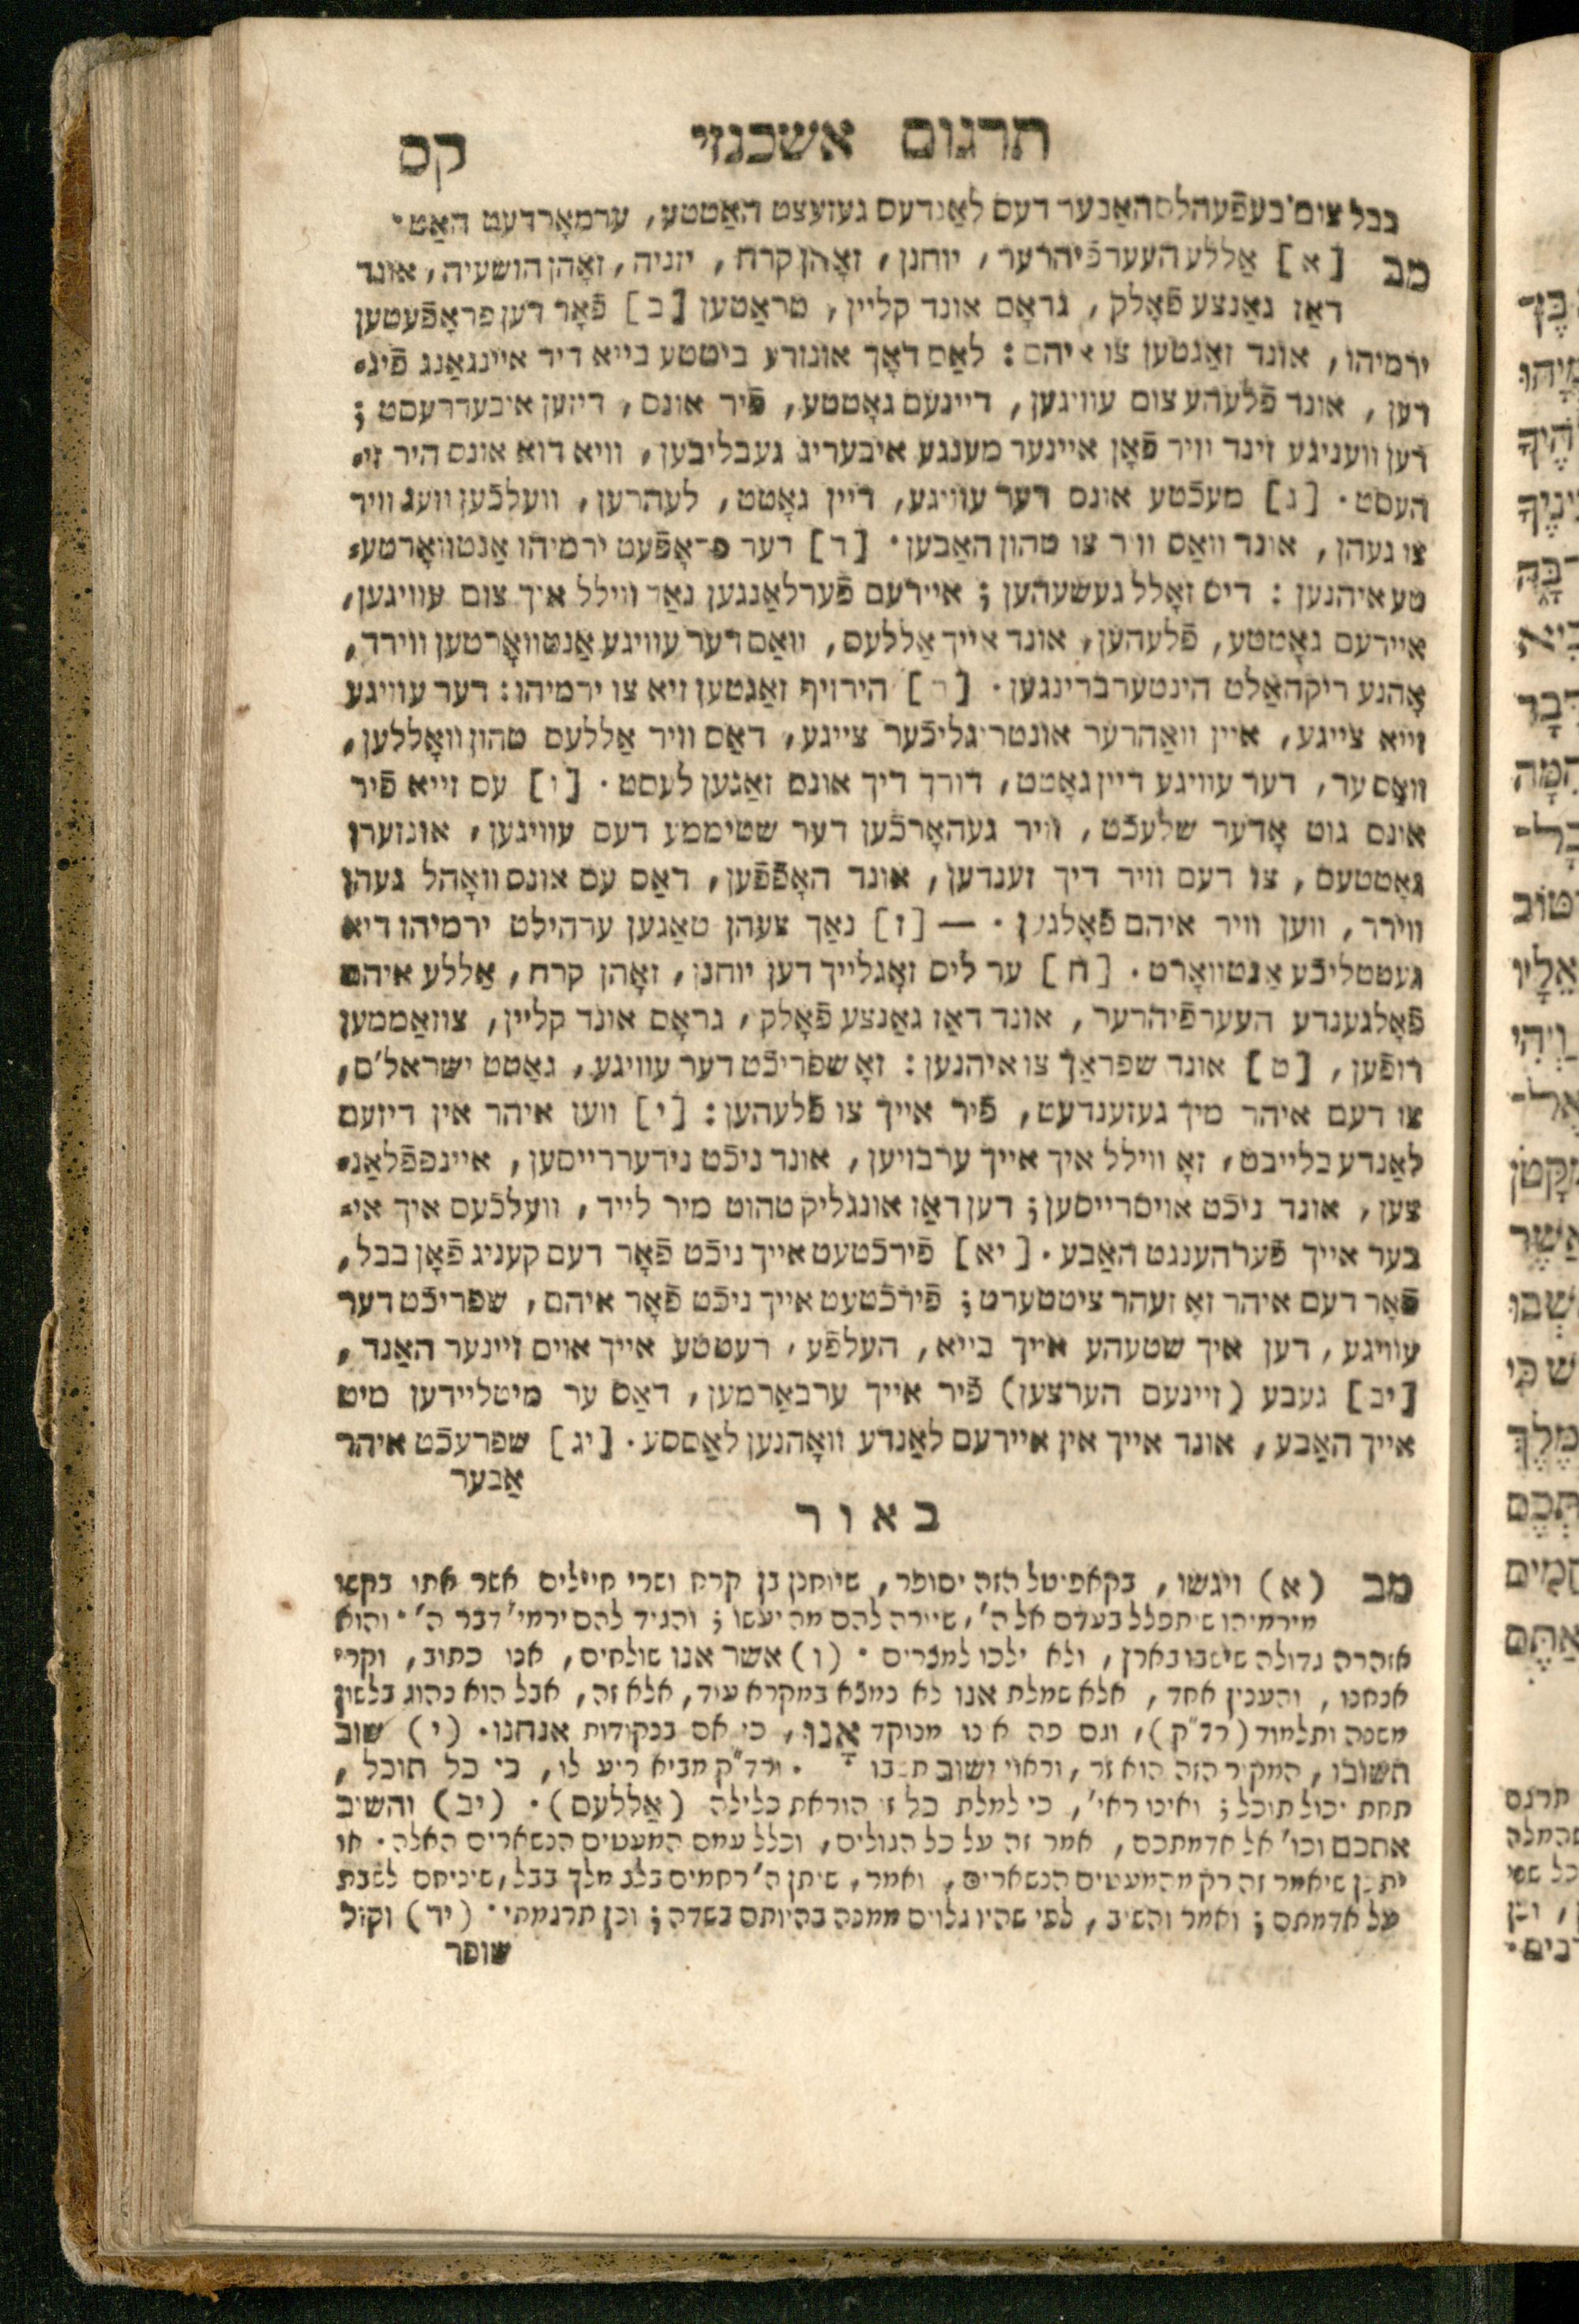 תרגום אשכנזי קס
בבל צום בעפֿעהלסהאַבער דעס לאַנדעס געזעצט האַטטע, ערמאָרדעט האַט·
מב [א] אַללע העערפֿיהרער, יוחנן, זאָהן קרח, יזניה, זאָהן הושעיה, אונד
דאַז גאַנצע פֿאָלק, גראָס אונד קליין, טראַטען [ב] פֿאָר דען פראָפֿעטען
ירמיהו, אונד זאַגטען צו איהם: לאַס דאָך אונזרע ביטטע בייא דיר איינגאַנג פֿינ⸗
דען, אונד פֿלעהע צום עוויגען, דיינעם גאָטטע, פֿיר אונס, דיזען איבעררעסט;
דען וועניגע זינד וויר פֿאָן איינער מענגע איבעריג געבליבען, וויא דוא אונס היר זי⸗
העסט· [ג] מעכֿטע אונס דער עוויגע, דיין גאָטט, לעהרען, וועלכֿען וועג וויר
צו געהן, אונד וואַס וויר צו טהון האַבען· [ד] דער פראָפֿעט ירמיהו אַנטוואָרטע⸗
טע איהנען: דיס זאָלל געשעהען; איירעם פֿערלאַנגען נאַך ווילל איך צום עוויגען,
איירעם גאָטטע, פֿלעהען, אונד אייך אַללעס, וואַס דער עוויגע אַנטוואָרטען ווירד,
אָהנע ריקהאַלט הינטערברינגען· [ה] הירויף זאַגטען זיא צו ירמיהו: דער עוויגע
זייא צייגע, איין וואַהרער אונטריגליכֿער צייגע, דאַס וויר אַללעס טהון וואָללען,
וואָס ער, דער עוויגע דיין גאָטט, דורך דיך אונס זאַגען לעסט· [ו] עס זייא פֿיר
אונס גוט אָדער שלעכֿט, וויר געהאָרכֿען דער שטיממע דעס עוויגען, אונזערן
גאָטטעס, צו דעם וויר דיך זענדען, אונד האָפֿפֿען, דאַס עס אונס וואָהל געהן
ווירד, ווען וויר איהם פֿאָלגען · — [ז] נאַך צעהן טאַגען ערהילט ירמיהו דיא
געטטליכֿע אַנטוואָרט· [ח] ער ליס זאָגלייך דען יוחנן, זאָהן קרח, אַללע איהם
פֿאָלגענדע העערפֿיהרער, אונד דאַז גאַנצע פֿאָלק, גראָס אונד קליין, צוזאַממען
רופֿען, [ט] אונד שפראַך צו איהנען: זאָ שפריכֿט דער עוויגע, גאַטט ישראל'ס,
צו דעם איהר מיך געזענדעט, פֿיר אייך צו פֿלעהען: [י] ווען איהר אין דיזעם
לאַנדע בלייבט, זאָ ווילל איך אייך ערבויען, אונד ניכֿט נידעררייסען, איינפפֿלאַנ⸗
צען, אונד ניכֿט אויסרייסען; דען דאַז אונגליק טהוט מיר לייד, וועלכֿעס איך אי⸗
בער אייך פֿערהענגט האַבע· [יא] פֿירכֿטעט אייך ניכֿט פֿאָר דעם קעניג פֿאָן בבל,
פֿאָר דעם איהר זאָ זעהר ציטטערט; פֿירכֿטעט אייך ניכֿט פֿאָר איהם, שפריכֿט דער
עוויגע, דען איך שטעהע אייך בייא, העלפֿע, רעטטע אייך אויס זיינער האַנד,
[יב] געבע (זיינעם הערצען) פֿיר אייך ערבאַרמען, דאַס ער מיטליידען מיט
אייך האַבע, אונד אייך אין איירעם לאַנדע וואָהנען לאַססע· [יג] שפרעכֿט איהר
אַבער
באור
מב (א) ויגשו, בקאפיטל הזה יסופר, שיוחנן בן קרח ושרי חיילים אשר אתו בקשו
מירמיהו שיתפלל בעדם אל ה', שיורה להם מה יעשו; והגיד להם ירמי' דבר ה'· והוא
אזהרה גדולה שישבו בארץ, ולא ילכו למצרים · (ו) אשר אנו שולחים, אנו כתוב, וקרי
אנחנו, והענין אחד, אלא שמלת אנו לא נמצא במקרא עוד, אלא זה, אבל הוא נהוג בלשון
משנה ותלמוד (רד"ק), וגם פה אינו מנוקד אָנוּ, כי אם בנקודות אנחנו· (י) שוב
תשובו, המקור הזה הוא זר, וראוי ישוב תשבו · ורד"ק מביא ריע לו, כי כל תוכל,
תחת יכול תוכל; ואינו ראי', כי למלת כל זו הוראת כלילה (אַללעס)· (יב) והשיב
אתכם וכו' אל אדמתכם, אמר זה על כל הגולים, וכלל עמם המעטים הנשארים האלה· או
יתכן שיאמר זה רק מהמעטים הנשארים, ואמר, שיתן ה' רחמים בלב מלך בבל, שיניחם לשבת
על אדמתם; ואמר והשיב, לפי שהיו גלוים ממנה בהיותם בשדה; וכן תרגמתי· (יד) וקול
שופר